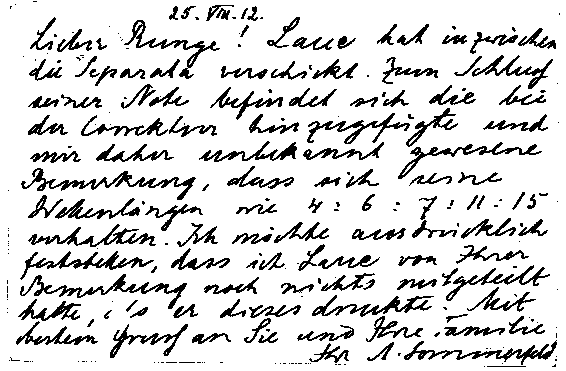 25. VIII. 12.
Lieber Runge! Laue hat inzwischen
die Separata verschickt. Zum Schluß
seiner Note befindet sich die bei
der Correktur hinzugefügte und
mir daher unbekannt gewesene
Bemerkung, dass sich seine
Wellenlängen wie 4 : 6 : 7 : 11 : 15
verhalten. Ich möchte ausdrücklich
feststellen, dass ich Laue von Ihrer
Bemerkung noch nichts mitgeteilt
hatte, als er dieses druckte. Mit
bestem Gruß an Sie und Ihre Familie
Ihr A. Sommerfeld